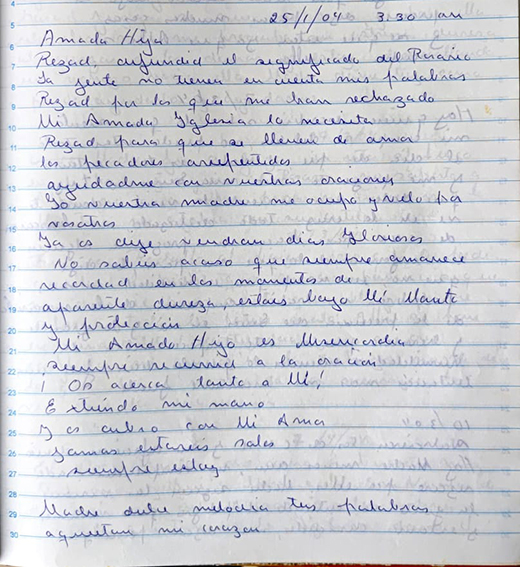 25/1/04 3.30 am
Amada Hija
Rezad, difundid el significado del Rosario
La gente no tienen en cuenta mis palabras
Rezad por los que me han rechazado
Mi Amada Iglesia la necesita
Rezad para que se llenen de amor
los pecadores arrepentidos
ayudadme con vuestras oraciones
Yo vuestra madre me ocupo y velo por
vosotros
Ya os dije vendran dias Gloriosos
No sabeis acaso que siempre amanece
recordad en los momentos de
aparente dureza, estais bajo Mi Manto
y proteccion
Mi Amado Hijo es Misericordia
Siempre recurrid a la oracion
¡ Os acerca tanto a Mi!
Extiendo mi mano
Y os cubro con Mi Amor
Jamas estareis solos
siempre estoy
Madre dulce melodia tus palabras
aquietan mi corazon